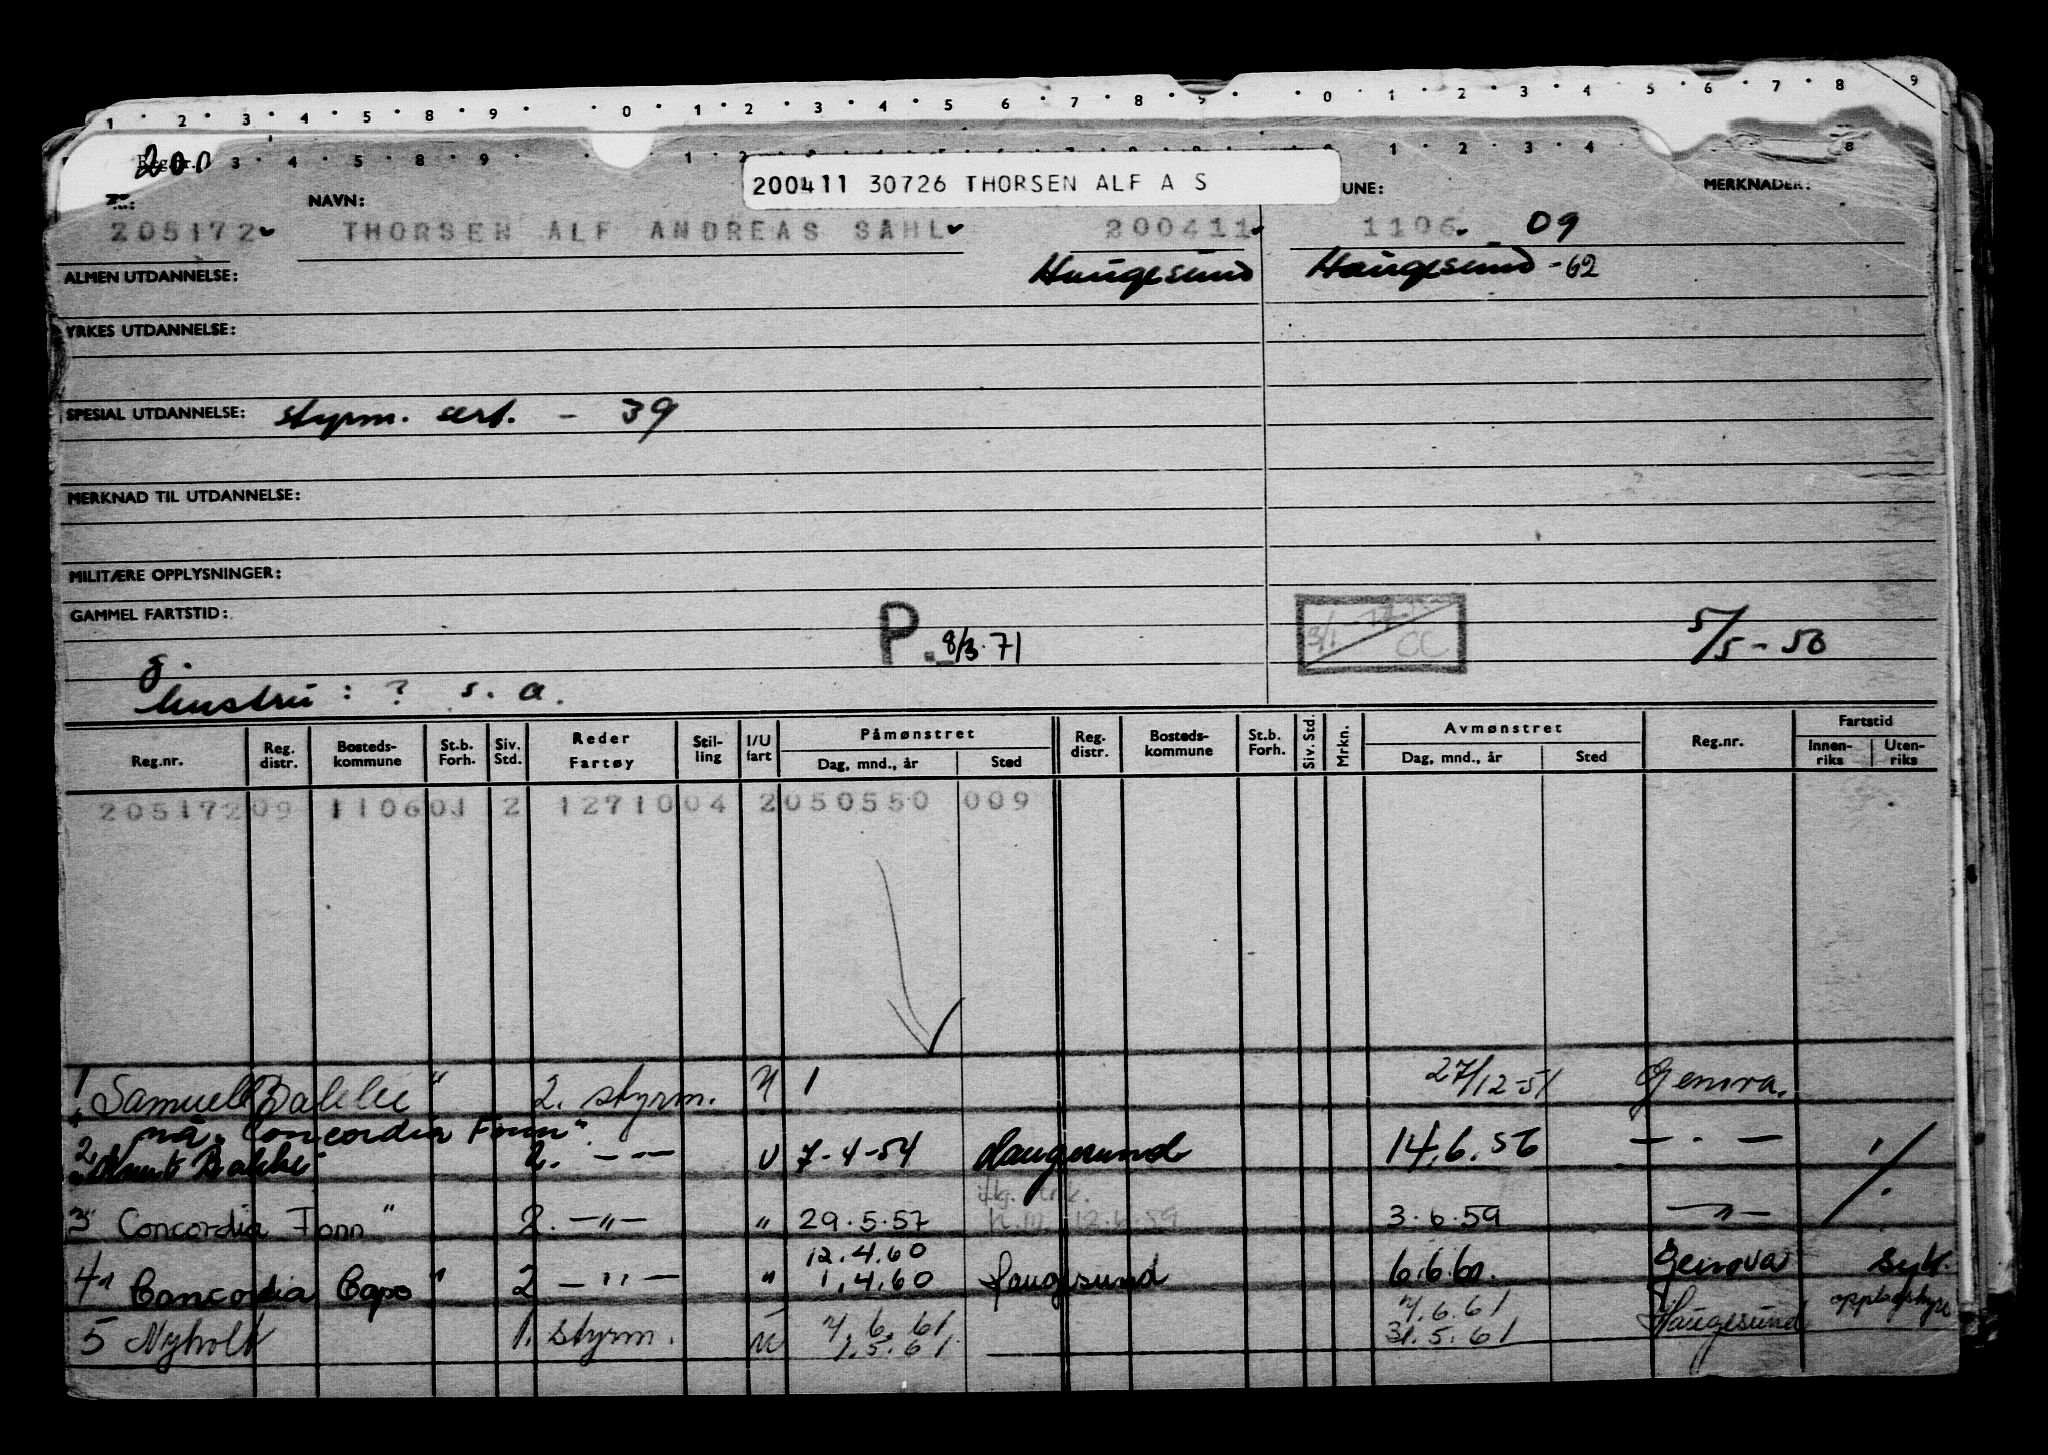 1 2 3 4 5 8 9 0 1 2 3 4 5 6 7 8 9 0 1 2 3 4 5 6 7 8 9
200 3 4 5 8 9 1 2 1 2 3 4 8
200411 30726 THORSEN ALF A S
NAVN: UNE: MERKNADER:
205172 THORSEN ALF ANDREAS SAHL 200411 1106 - 09
ALMEN UTDANNELSE: Haugesund Haugesund - 62
YRKES UTDANNELSE:
SPESIAL UTDANNELSE: styrm. sert. - 39
MERKNAD TIL UTDANNELSE:
MILITÆRE OPPLYSNINGER:
GAMMEL FARTSTID: P. 8/3.71 5/5-50
g.
hustru: ? s. a.
Reg.nr. Reg. distr. Bosteds-kommune St.b. Forh. Siv. Std. Reder Fartøy Stil-ling I/U fart Påmønstret Dag, mnd., år Sted Reg. distr. Bosteds-kommune St.b. Forh. Siv. Std. Mrkn. Avmønstret Dag, mnd., år Sted Reg.nr. Fartstid Innen-riks Uten-riks
205172 09 1106 01 2 12710 04 2 050550 009
1 Samuel Bakke" 2. styrm. U 1 27/12-51 Genova.
nå "Concordia Fonn".
2. "Knut Bakke" 2. -"- U 7-4-54 Haugesund 14.6.56 - " -
3" Concordia Fonn" 2. -"- " 29.5.57 12.6.59 3.6.59 -"-
12.4.60
4" Concordia Capo" 2 -"- " 1.4.60 Haugesund 6.6.60. Genova syk.
7.6.61 7.6.61
5 Nyholt 1. styrm. U 1.5.61 31.5.61 Haugesund